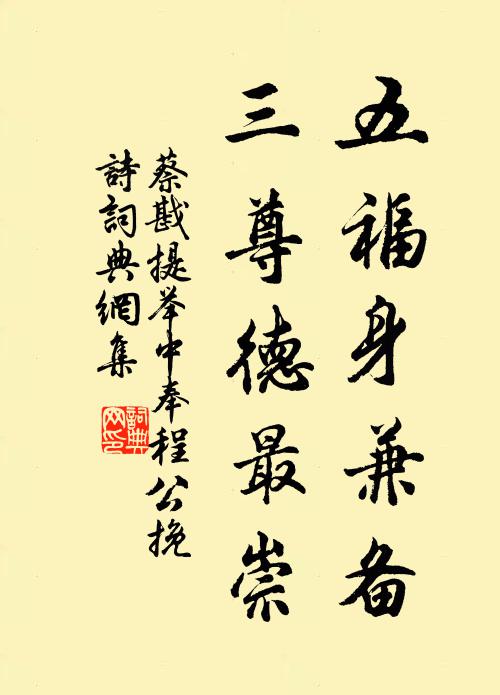 五福身兼备
三尊德最崇
蔡戡提举中奉程公挽
詩詞典網集
詞典
网印